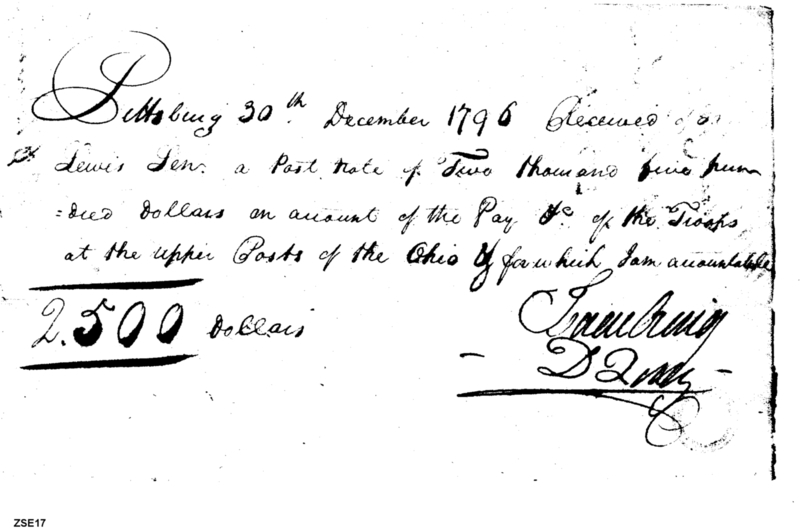 Pittsburg 30th. December 1796 Received of
Lewis Senr. a Post Note of Two thousand five hun
=dred Dollars on account of the Pay &c. of the Troops
at the upper Posts of the Ohio for which I am accountable
2.500 Dollars
Isaac Craig
D Q
ZSE17